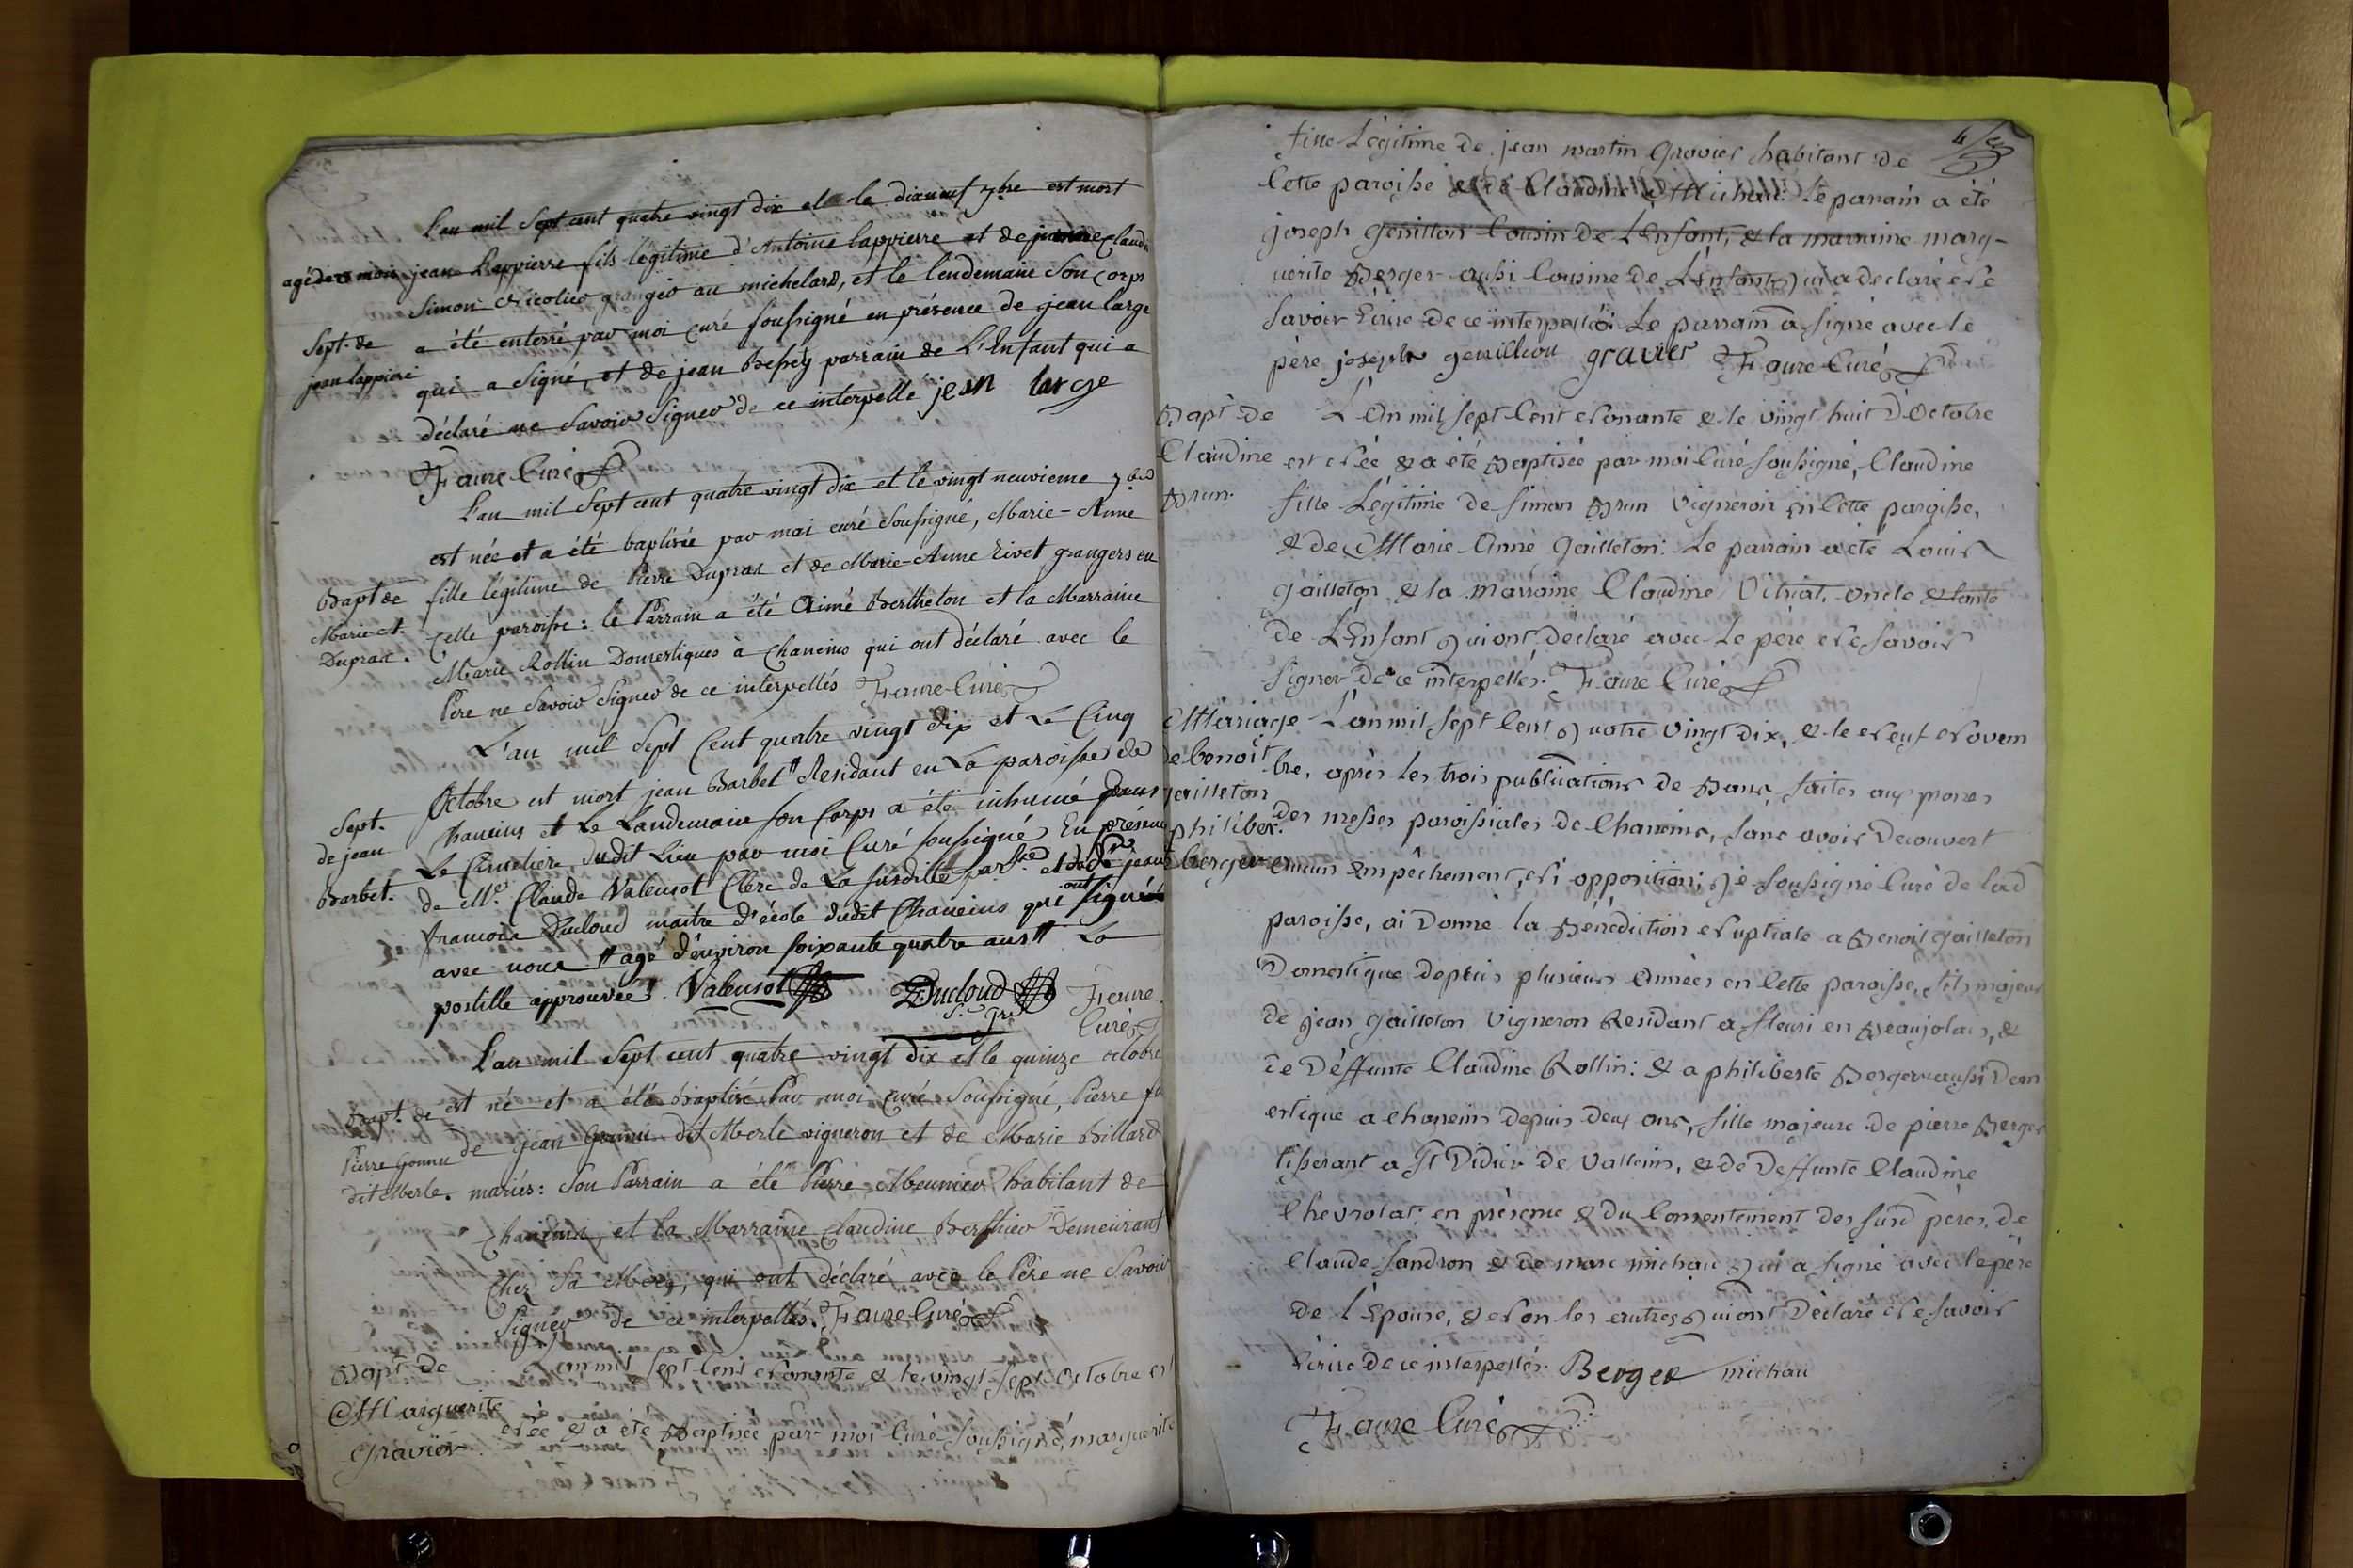 L'an mil Sept cent quatre vingt dix et le dixneuf 7bre est mort
agé de 13 mois jean Lappierre fils légitime d'Antoine lappierre et de Claudi
Simon granger au michelard, et le lendemain Son corps
Sept. de a été enterré par moi curé soussigné en présence de jean large
jean lappiere qui a signé, et de jean Bessey parrain de L'Enfant qui a
déclaré ne savoir signer de ce interpellé jean large
Faure Curé
L'an mil Sept cent quatre vingt dix et le vingt neuvieme 7bre
est née et a été baptisée par moi curé soussigné, Marie-Anne
Bapt de fille légitime de Pierre Dupras et de Marie-Anne Rivet grangers en
Marie A. Cette paroisse: le Parrain a été Aimé Bertheton et la Marraine
Dupras. Marie Rollin Domestiques à Chaneins qui ont déclaré avec le
Pere ne Savoir Signer de ce interpellés Faure Curé
L'an mil Sept Cent quatre vingt dix et Le Cinq
Octobre est mort jean Barbet # Residant en La paroisse de
Sept. Chaneins et Le Landemain son Corps a été inhumé dans
de jean Le Cimetiere dudit Lieu par moi Curé soussigné En présence
Barbet. de Me. Claude Valensot Clerc de La susditte parsse et de Sr jean
francois Ducloud maitre d'école dudit Chaneins qui ont signés
avec nous # agé d'environ soixante quatre ans # La
postille approuvée Valensot Ducloud Faure
Curé
L'an mil Sept cent quatre vingt dix et le quinze octobre
Bapt. de est né et a été Baptisé Par moi curé Soussigné, Pierre fils
Pierre Gonnu de jean Gonnu dit Merle vigneron et de Marie Billard
dit Merle. mariés: Son Parrain a été Pierre Meunier habitant de
Chaneins, et la Marraine Claudine Berthier Demeurant
Chez Sa Mere, qui ont déclaré avec le Père ne Savoir
Signer de ce interpellés. Faure Curé
Bapt de L'an mil sept cent nonante & le vingt sept Octobre est
Marguerite née & a été Baptisée par moi Curé soussigné, marguerite
Gravier.
fille Légitime de jean martin Gravier habitant de
Cette paroisse & de Claudine Michau: Le parrain a été
joseph Genillon Cousin de L'Enfant, & la marraine marg-
uerite Berger aussi Cousine de L'Enfant qui a declaré ne
savoir Ecrire de ce interpellée: Le parrain a signé avec le
père joseph genillion gravier Faure Curé
Bapt de L'An mil sept Cent nonante & le vingt huit d'Octobre
Claudine est née & a été Baptisée par moi Curé soussigné, Claudine
Brun. fille Légitime de simon Brun Vigneron en Cette paroisse,
& de Marie-Anne Gailleton: Le parrain a été Louis
Gailleton & la marraine Claudine Vitriat, oncle & tante
de L'Enfant qui ont Déclaré avec Le pere ne savoir
signer de ce interpellés. Faure Curé
Mariage L'an mil sept Cent quatre Vingt dix, & le neuf novem
de benoît bre, après les trois publications de Bans, faites aux prones
gailleton des messes paroissiales de Chaneins, sans avoir Decouvert
philiber. berger aucun Empêchement, ni opposition; je soussigné Curé de lad
paroisse, ai Donné la Bénédiction nuptiale a Benoit Gailleton
Domestique depuis plusieurs Années en Cette paroisse, fils majeur
de jean Gailleton Vigneron Residant a fleuri en Beaujolais, &
de Déffunte Claudine Rollin: & a philiberte Berger aussi Dom
estique a chaneins depuis deux ans, fille majeure de pierre Berger
tisserant a St Didier de Valleins, & de Deffunte Claudine
Chevrolat: en présence & du Consentement des susd pères, de
Claude Sandron & de marc michau qui a signé avec le père
de l'Epouse, & non les autres qui ont Déclaré ne savoir
Ecrire de ce interpellés. Berger michau
Faure Curé